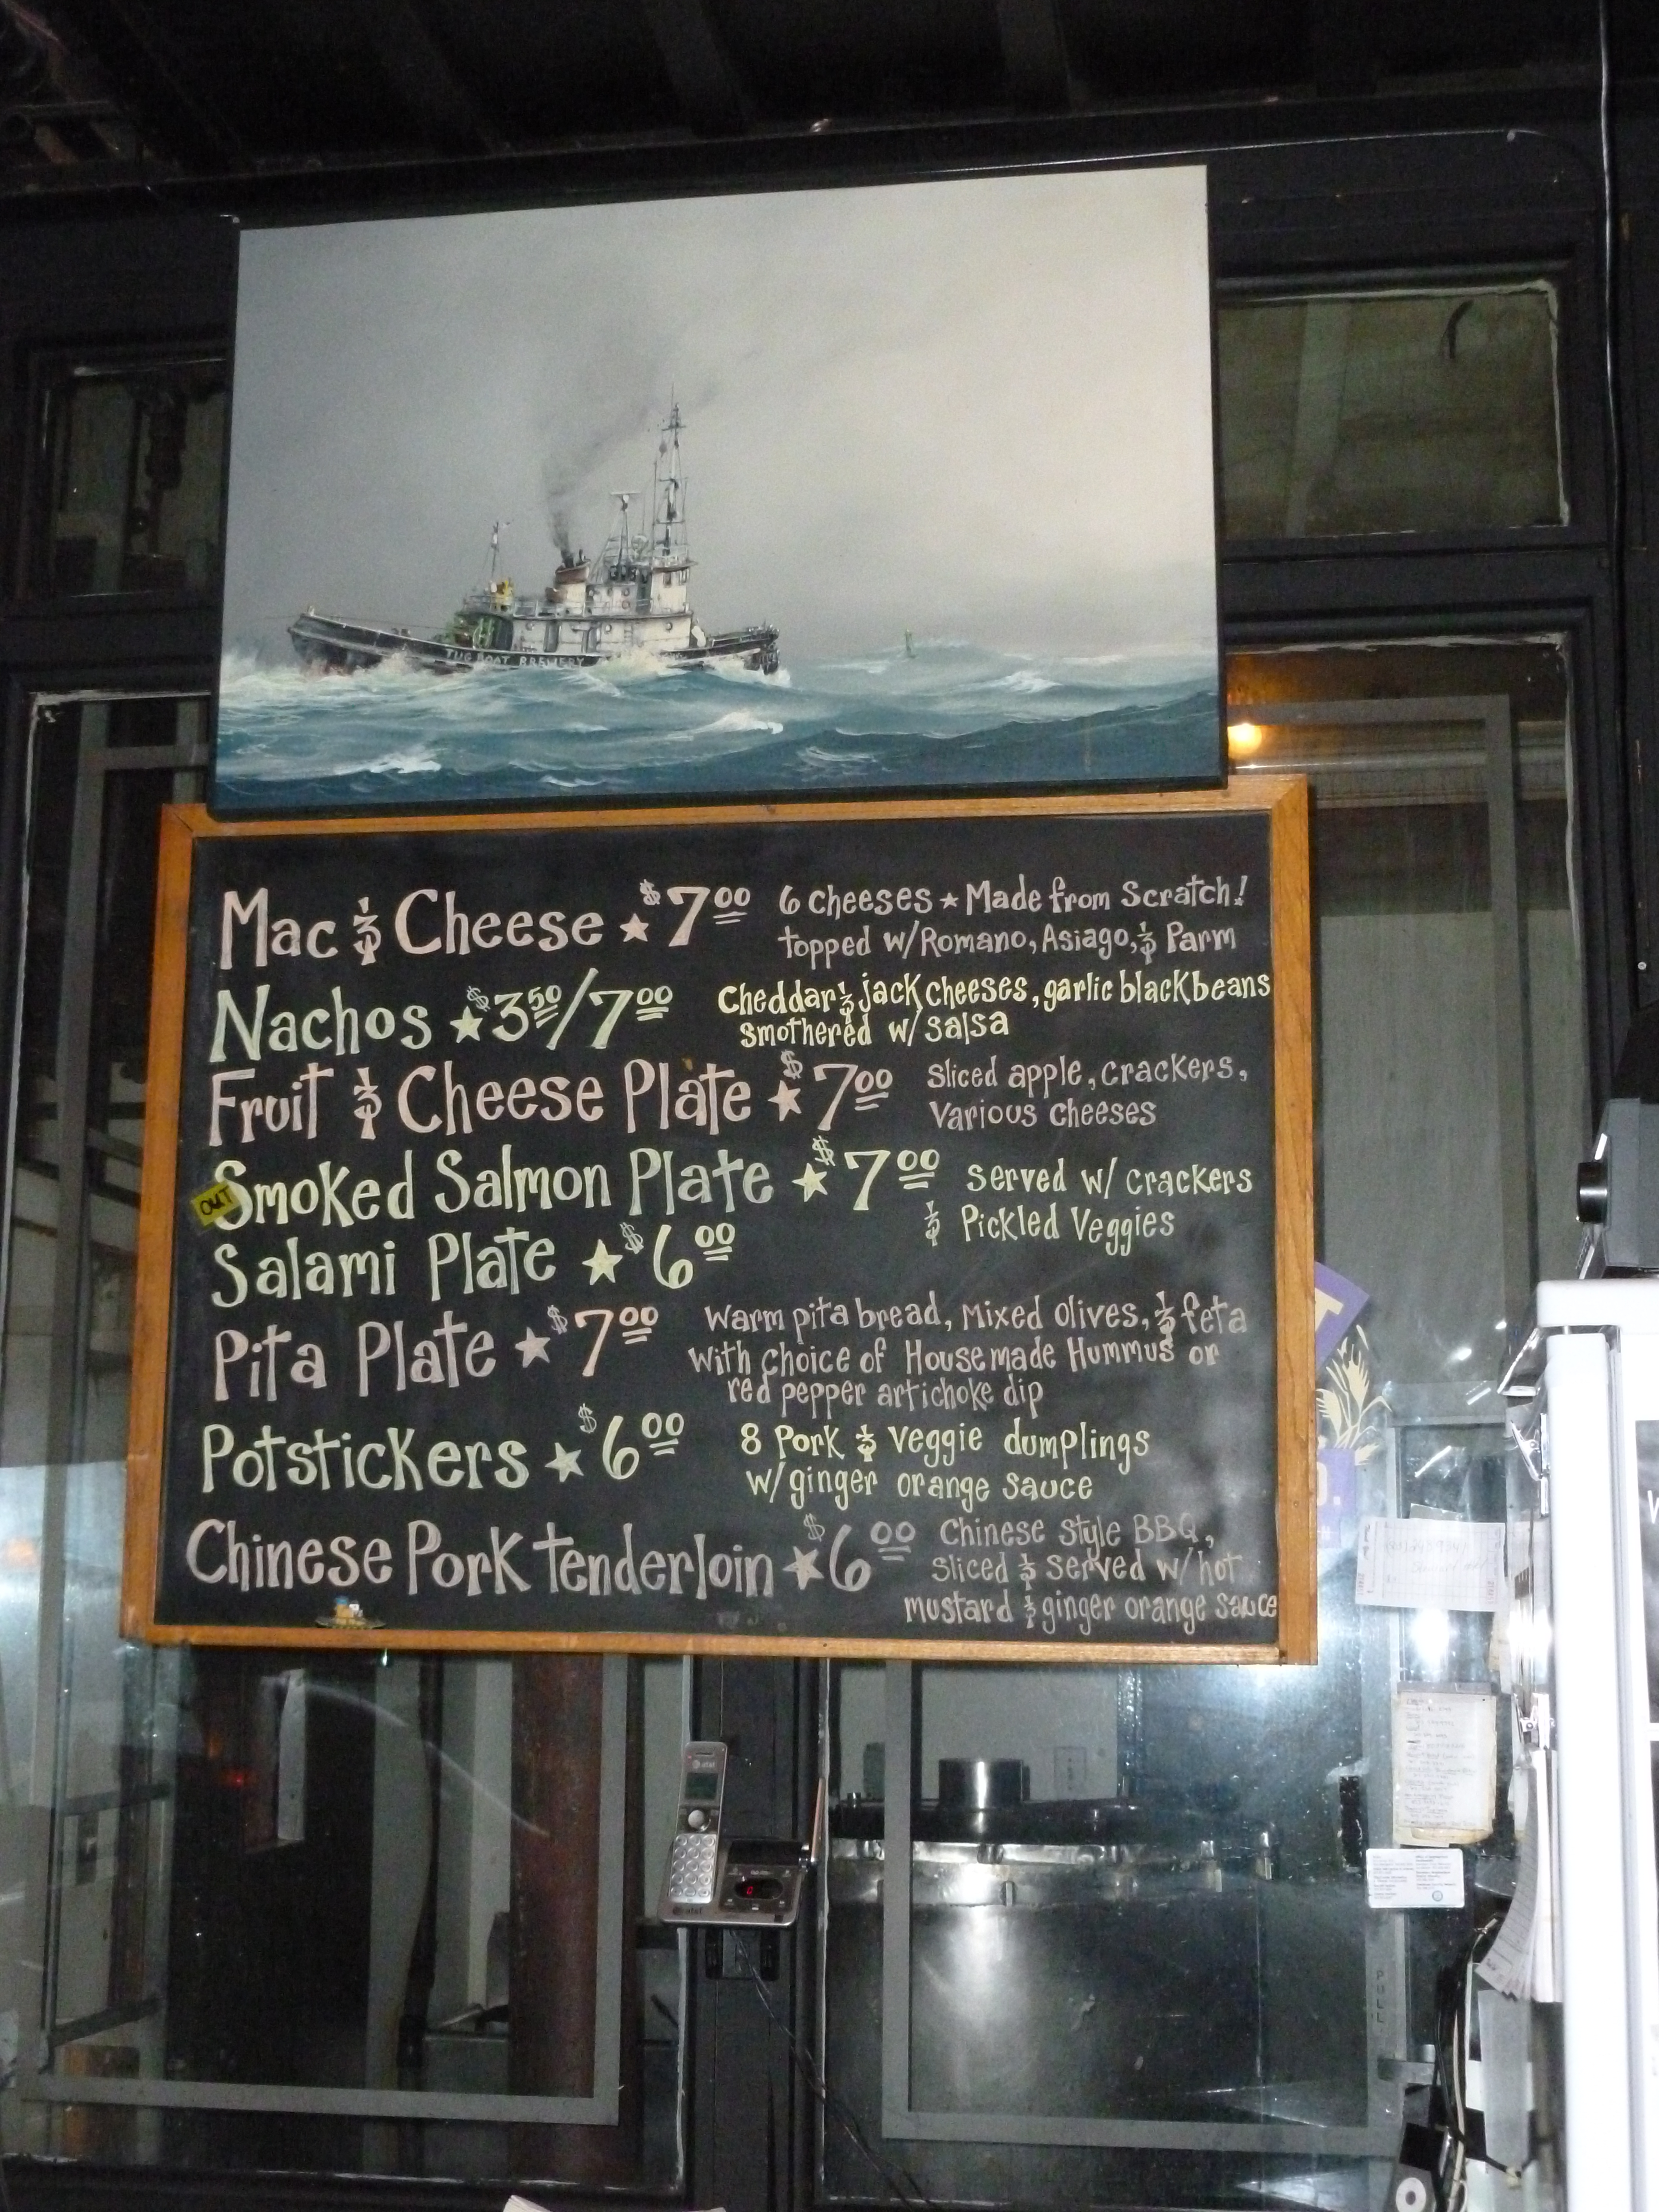 TUGBOAT BREWERY
Mac & Cheese ★ $7.00 6 cheeses ★ Made from Scratch!
topped w/Romano, Asiago, & Parm
Nachos ★ $3.50/7.00 Cheddar & jack cheeses, garlic black beans
smothered w/ salsa
Fruit & Cheese Plate ★ $7.00 sliced apple, crackers,
various cheeses
OUT
Smoked Salmon Plate ★ $7.00 served w/ crackers
& Pickled Veggies
Salami Plate ★ $6.00
Pita Plate ★ $7.00 warm pita bread, Mixed Olives, & feta
with choice of Housemade Hummus or
red pepper artichoke dip
Potstickers ★ $6.00 8 Pork & veggie dumplings
w/ginger orange sauce
Chinese Pork tenderloin ★ $6.00 Chinese style BBQ,
sliced & served w/ hot
mustard & ginger orange sauce
at&t
at&t
PULL